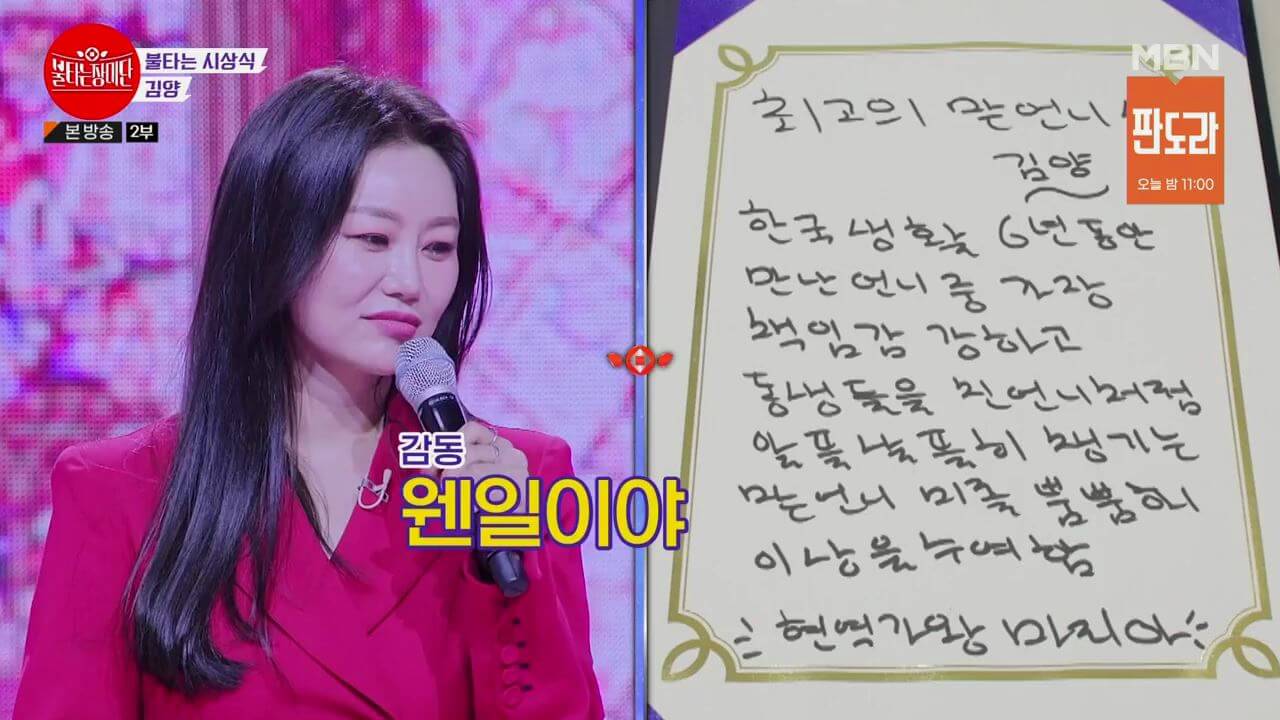 불타는장미단
불타는 시상식
김양
본방송 2부
MBN
판도라
오늘 밤 11:00
최고의 맏언니
김양
한국 생활 6년 동안
만난 언니 중 가장
책임감 강하고
동생들을 친언니처럼
알뜰살뜰히 챙기는
맏언니 미쥭 뿜뿜하니
이 상을 수여함
현역가왕 마리아
감동
웬일이야